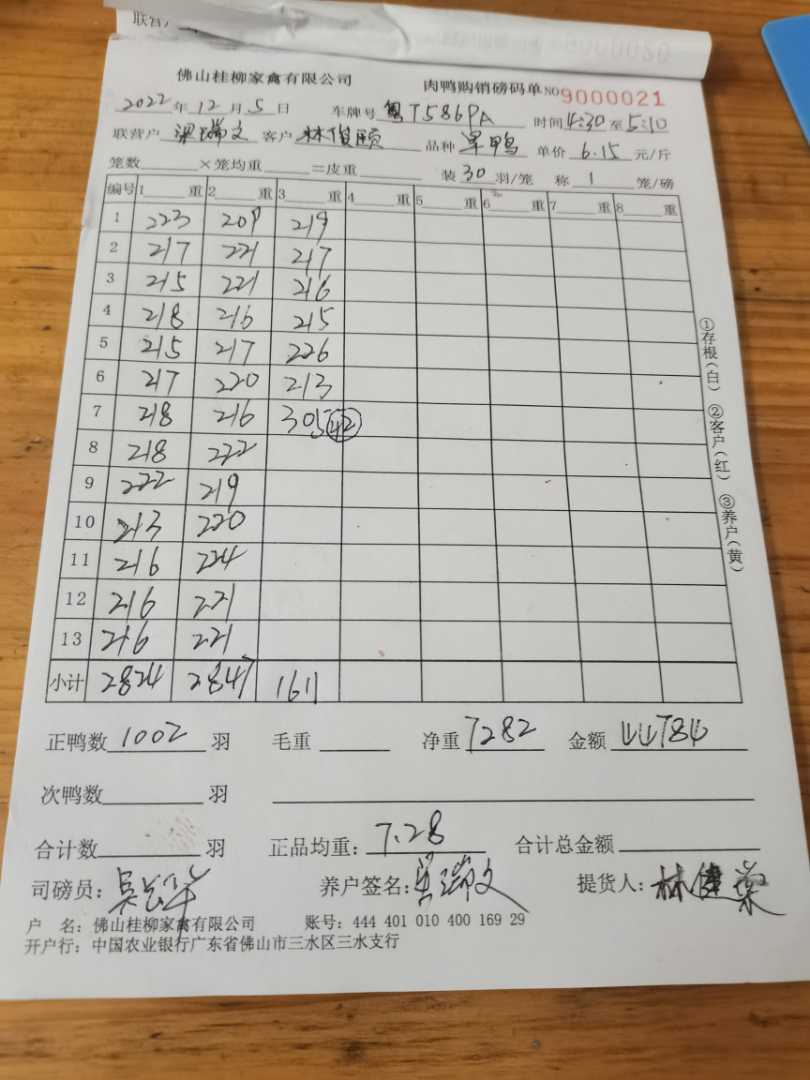 联营户
9000020
佛山桂柳家禽有限公司 肉鸭购销磅码单 NO 9000021
2022年12月5日 车牌号 粤T586PA 时间4:30至5:10
联营户 梁瑞文 客户 林俊颐 品种 旱鸭 单价 6.15 元/斤
笼数 ×笼均重 =皮重 装30羽/笼 称 1 笼/磅
编号 1 重 2 重 3 重 4 重 5 重 6 重 7 重 8 重
1 223 209 219
2 217 221 217
3 215 221 216
4 218 216 215
5 215 217 226
6 217 220 213
7 218 216 305 (42)
8 218 222
9 222 219
10 213 220
11 216 224
12 216 221
13 216 221
小计 2824 2847 1611
正鸭数 1002 羽 毛重 净重 7282 金额 44784
次鸭数 羽
合计数 羽 正品均重: 7.28 合计总金额
司磅员: 养户签名: 瑞文 提货人: 林健
户 名: 佛山桂柳家禽有限公司 账号: 444 401 010 400 169 29
开户行: 中国农业银行广东省佛山市三水区三水支行
①存根(白) ②客户(红) ③养户(黄)